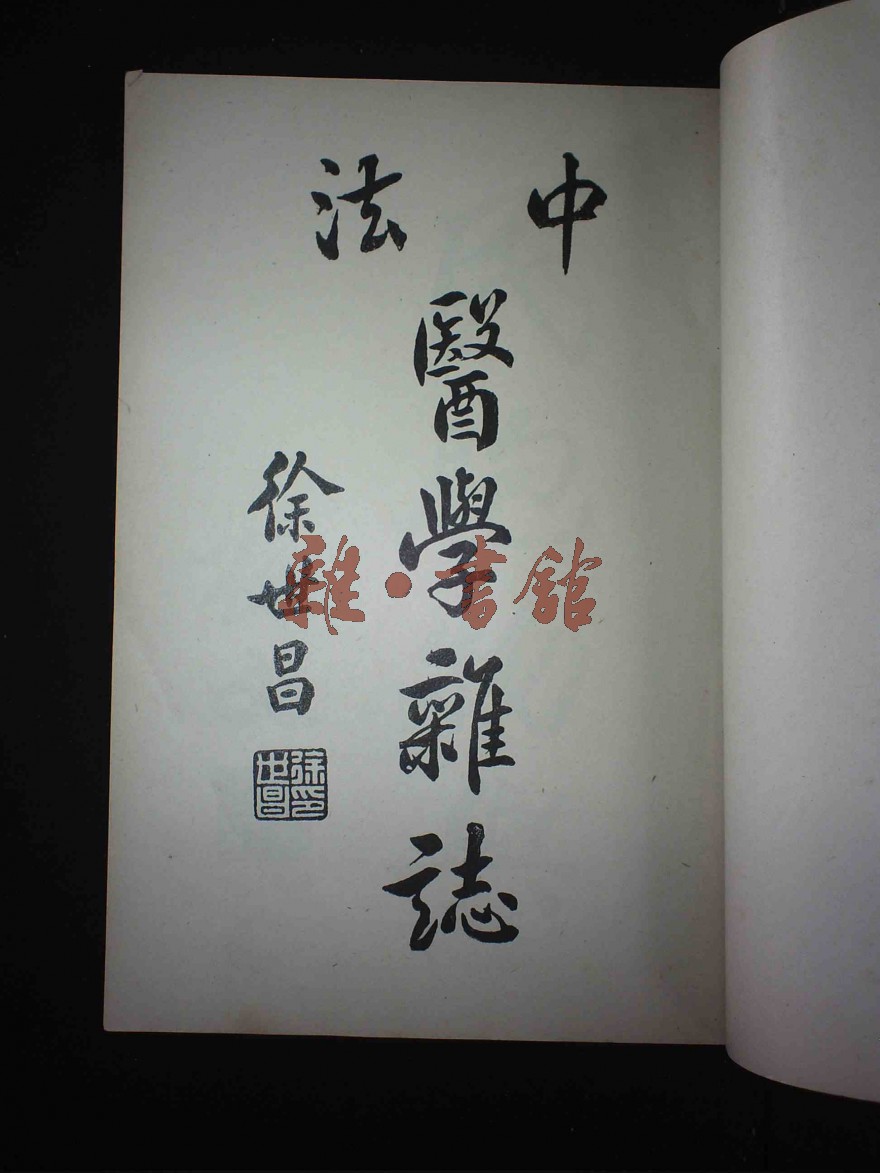 中法
醫學雜誌
徐世昌
徐世昌印
雜·書館